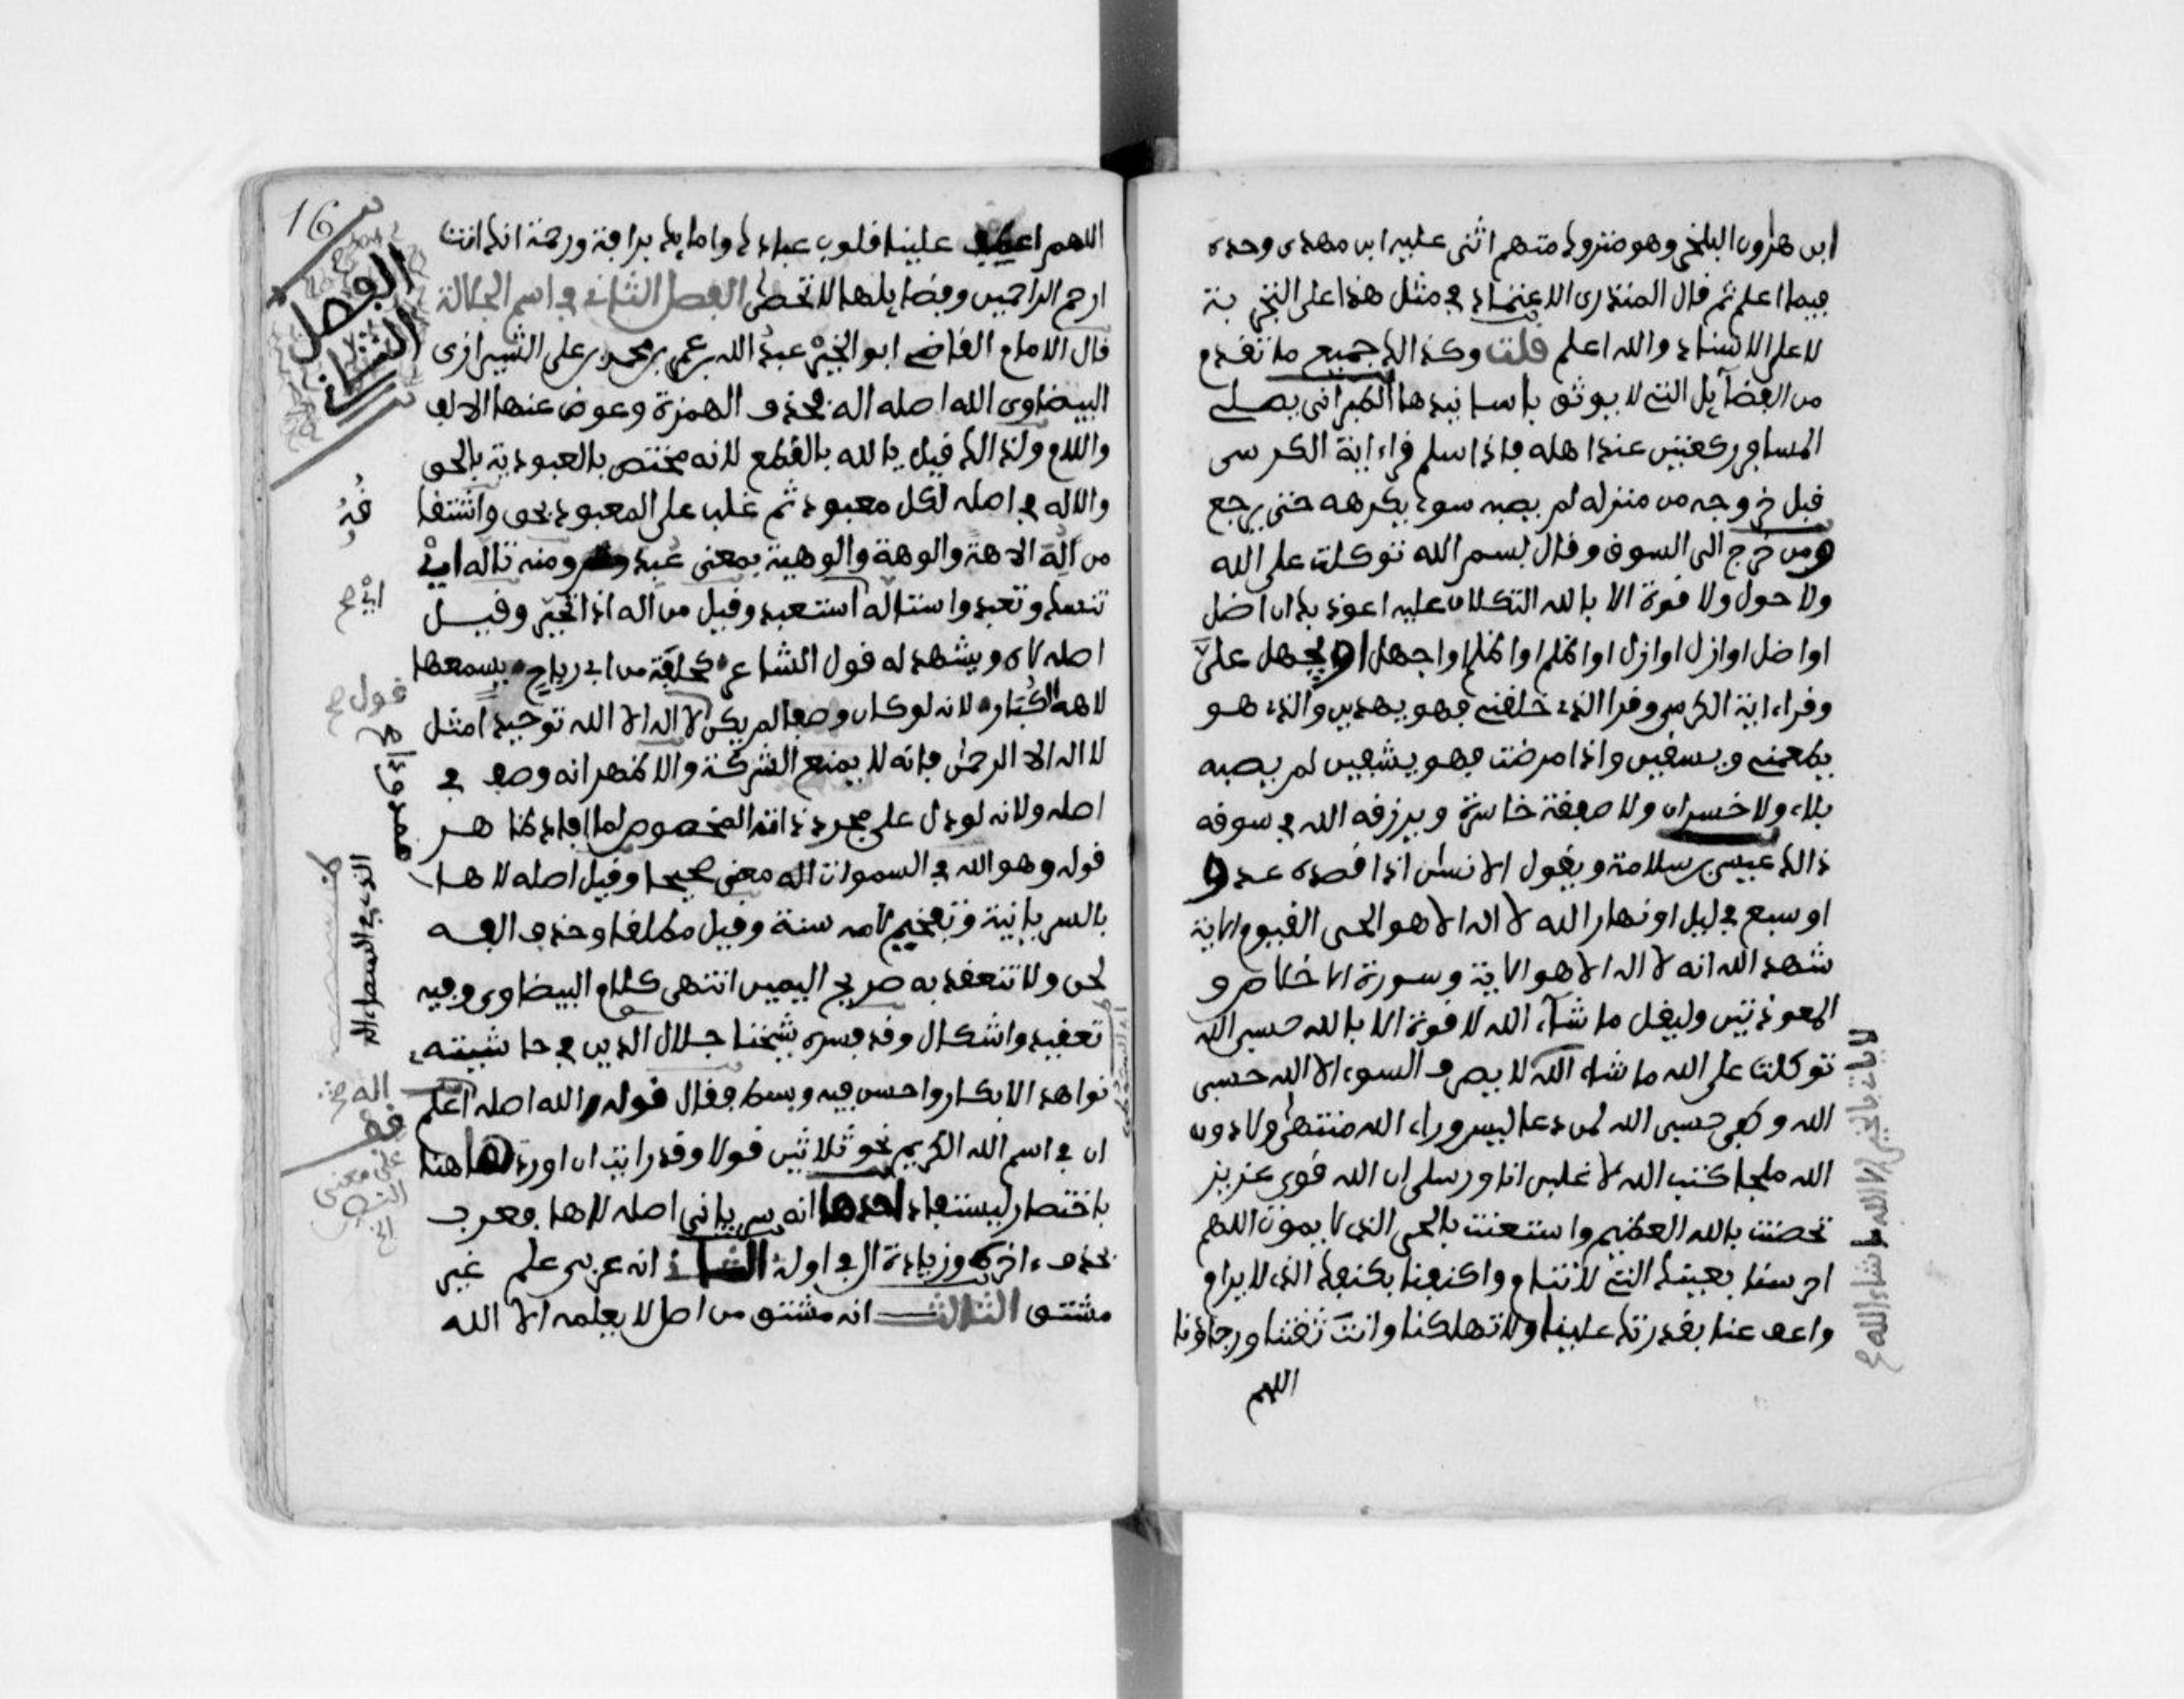 ابن هرون البلخي وهو متروك متهم اثنى عليه ابن مهدى وحده
فيما اعلم ثم قال المنذرى الاعتماد في مثل هذا على التجربة
لا على الاسناد والله اعلم قلت وكذالك جميع ما تقدم
من الفضآيل التي لا يوثق باسانيدها الطبرانى يصلي
المسافر ركعتين عند اهله فاذا سلم قراء اية الكرسى
قبل خروجه من منزله لم يصبه سوء يكرهه حتى يرجع
ومن خرج الى السوق وقال بسم الله توكلت على الله
ولا حول ولا قوة الا بالله التكلان عليه اعوذ بك ان اضل
او اضل او ازل او ازل او اظلم او اظلم او اجهل او يجهل على
وقراء اية الكرسى وقرا الذى خلقنى فهو يهدين والذى هو
يطعمني ويسقين واذا مرضت فهو يشفين لم يصبه
بلاء ولا خسران ولا صفقة خاسرة ويرزقه الله في سوقه
ذالك عيسى بن سلامة ويقول الانسان اذا قصده عدو
او سبع في ليل او نهار الله لا اله الا هو الحى القيوم الاية
شهد الله انه لا اله الا هو الاية وسورة الاخلاص و
المعوذتين وليقل ما شآء الله لا قوة الا بالله حسبى الله
توكلت على الله ما شاء الله لا يصرف السوء الا الله حسبى
الله وكفى حسبى الله لمن دعا ليس وراء الله منتهى ولا دون
الله ملجا كتب الله لا غلبن انا ورسلى ان الله قوى عزيز
تحصنت بالله العظيم واستعنت بالحى الذى لا يموت اللهم
احرسنا بعينك التي لا تنام واكنفنا بكنفك الذى لا يرام
واعف عنا بقدرتك علينا ولا تهلكنا وانت ثقتنا ورجاؤنا
اللهم
لا يات بالخير الا الله ما شاء الله
16
اللهم اعطف علينا قلوب عبادك وامايك برافة ورحمة انك انت
ارحم الراحمين وفضايلها لا تحصى الفصل الثاني في اسم الجلالة
قال الامام القاضي ابو الخير عبد الله بن عمر بن محمد بن على الشيرازى
البيضاوى الله اصله اله فحذف الهمزة وعوض عنها الالف
واللام ولذالك قيل يا لله بالقطع لانه مختص بالعبودية بالحق
والاله في اصله لكل معبود ثم غلب على المعبود بحق واشتقا
من اله الاهة والوهة والوهية بمعنى عبد ومنه تاله اى
تنسك وتعبد واستاله استعبد وقيل من اله اذا تحير وقيل
اصله لاه ويشهد له قول الشاعر كحلفة من ابى رياح يسمعها
لاهه الكبار لانه لو كان وصفا لم يكن لا اله الا الله توحيدا مثل
لا اله الا الرحمن فانه لا يمنع الشركة والاظهر انه وصف في
اصله ولانه لو دل على مجرد ذاته المخصوص لما افاد ظاهر
قوله وهو الله في السموات اله معنى صحيحا وقيل اصله لاها
بالسريانية وتفخيم لامه سنة وقيل مطلقا وحذف الفه
لحن ولا تنعقد به صريح اليمين انتهى كلام البيضاوى وفيه
تعقيد واشكال وقد فسره شيخنا جلال الدين في حاشيته
نواهد الابكار واحسن فيه وبسط فقال قوله الله اصله اعلم
ان في اسم الله الكريم نحو ثلاثين قولا وقد رايت ان اوردها هنا
باختصار ليستفاد احدها انه سريانى اصله لاها فعرب
بحذف ءاخره وزيادة ال في اوله الثاني انه عربى علم غير
مشتق الثالث انه مشتق من اصل لا يعلمه الا الله
الفصل
الثاني
قول
اله
على معنى